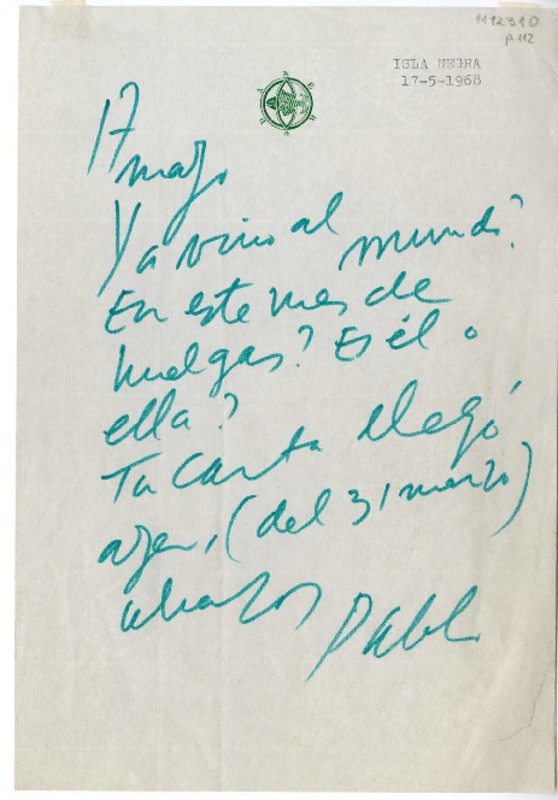 1112810
p.112
ISLA NEGRA
17-5-1968
NERUDA
17
mayo
Ya vino al mundo?
En este mes de
huelgas? Es él o
ella?
Tu carta llegó
ayer, (del 31 marzo)
abrazos
Pablo